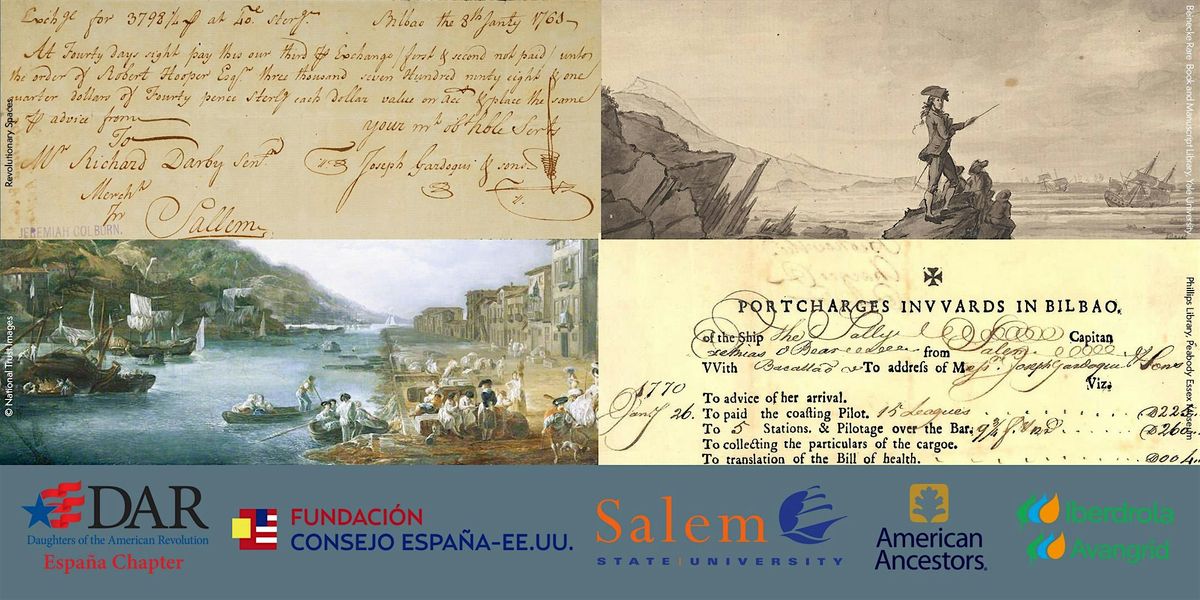 Exchge for 3798 1/4 $ at 40d sterg. Bilbao the 8th Janry 176
At Fourty days sight pay this our third of Exchange (first & second not paid) unto
the order of Robert Hooper Esqr. three thousand seven Hundred ninty eight & one
quarter dollars of Fourty pence sterlg each dollar value on acct & place the same
advice from
your mt. obt. hble Servts
To
Mr Richard Darby Senr.
Joseph Gardoqui & sons
Mercht
In
Sallem
JEREMIAH COLBURN.
Revolutionary Spaces
Beinecke Rare Book and Manuscript Library, Yale University
© National Trust Images
PORTCHARGES INVVARDS IN BILBAO.
of the Ship The Sally Capitan
from Salem
VVith Bacallao To addreſs of Meſs. Joseph Gardoqui & Sons
Viz.
1770
Janry 26. To advice of her arrival.
To paid the coaſting Pilot. 15 Leagues
To 5 Stations. & Pilotage over the Bar.
To collecting the particulars of the cargoe.
To translation of the Bill of health.
Phillips Library, Peabody Essex Museum
DAR
Daughters of the American Revolution
España Chapter
FUNDACIÓN
CONSEJO ESPAÑA-EE.UU.
Salem
STATE UNIVERSITY
American
Ancestors®
Iberdrola
Avangrid